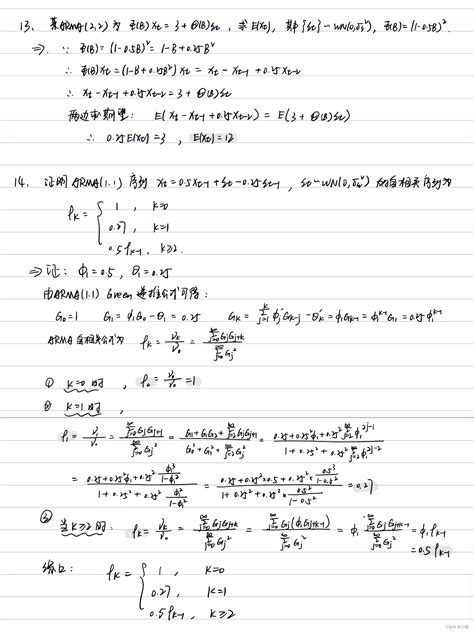 13. 某ARMA(2,2)为 Φ(B)Xt = 3 + Θ(B)εt , 求E(Xt), 其中{εt}~WN(0,σε²), Φ(B)=(1-0.5B)².
⇒ ∵ Φ(B) = (1-0.5B)² = 1-B+0.25B²
∴ Φ(B)Xt = (1-B+0.25B²)Xt = Xt - Xt-1 + 0.25Xt-2
∴ Xt - Xt-1 + 0.25Xt-2 = 3 + Θ(B)εt
两边求期望: E(Xt - Xt-1 + 0.25Xt-2) = E(3 + Θ(B)εt)
∴ 0.25E(Xt) = 3 , E(Xt) = 12
14. 证明ARMA(1.1)序列 Xt = 0.5Xt-1 + εt - 0.25εt-1 , εt~WN(0,σε²) 的自相关序列为
ρK = { 1 , K=0
0.27 , K=1
0.5ρK-1 , K≥2.
⇒ 证: ϕ1 = 0.5 , θ1 = 0.25
由ARMA(1.1) Green 递推公式可得:
G0 = 1 G1 = ϕ1G0 - θ1 = 0.25 GK = Σ(j=1..K) ϕj GK-j - θK' = ϕ1GK-1 = ϕ1^(K-1) G1 = 0.25ϕ1^(K-1)
ARMA 自相关公式为 ρK = γK/γ0 = Σ(j=0..∞) GjGj+K / Σ(j=0..∞) Gj²
① K=0 时 , ρ0 = γ0/γ0 = 1
② K=1 时 ,
ρ1 = γ1/γ0 = Σ(j=0..∞) GjGj+1 / Σ(j=0..∞) Gj² = (G1 + G1G2 + Σ(j=2..∞) GjGj+1) / (G0² + G1² + Σ(j=2..∞) Gj²) = (0.25 + 0.25²ϕ1 + 0.25² Σ(j=2..∞) ϕ1^(2j-1)) / (1 + 0.25² + 0.25² Σ(j=2..∞) ϕ1^(2j-2))
= (0.25 + 0.25²ϕ1 + 0.25² ϕ1³/(1-ϕ1²)) / (1 + 0.25² + 0.25² ϕ1²/(1-ϕ1²)) = (0.25 + 0.25²×0.5 + 0.25²× 0.5³/(1-0.5²)) / (1 + 0.25² + 0.25²× 0.5²/(1-0.5²)) = 0.27
③ 当K≥2时: ρK = γK/γ0 = Σ(j=0..∞) GjGj+K / Σ(j=0..∞) Gj² = Σ(j=0..∞) Gj(ϕ1Gj+K-1) / Σ(j=0..∞) Gj² = ϕ1 Σ(j=0..∞) GjGj+K-1 / Σ(j=0..∞) Gj² = ϕ1ρK-1
= 0.5ρK-1
综上: ρK = { 1 , K=0
0.27 , K=1
0.5ρK-1 , K≥2